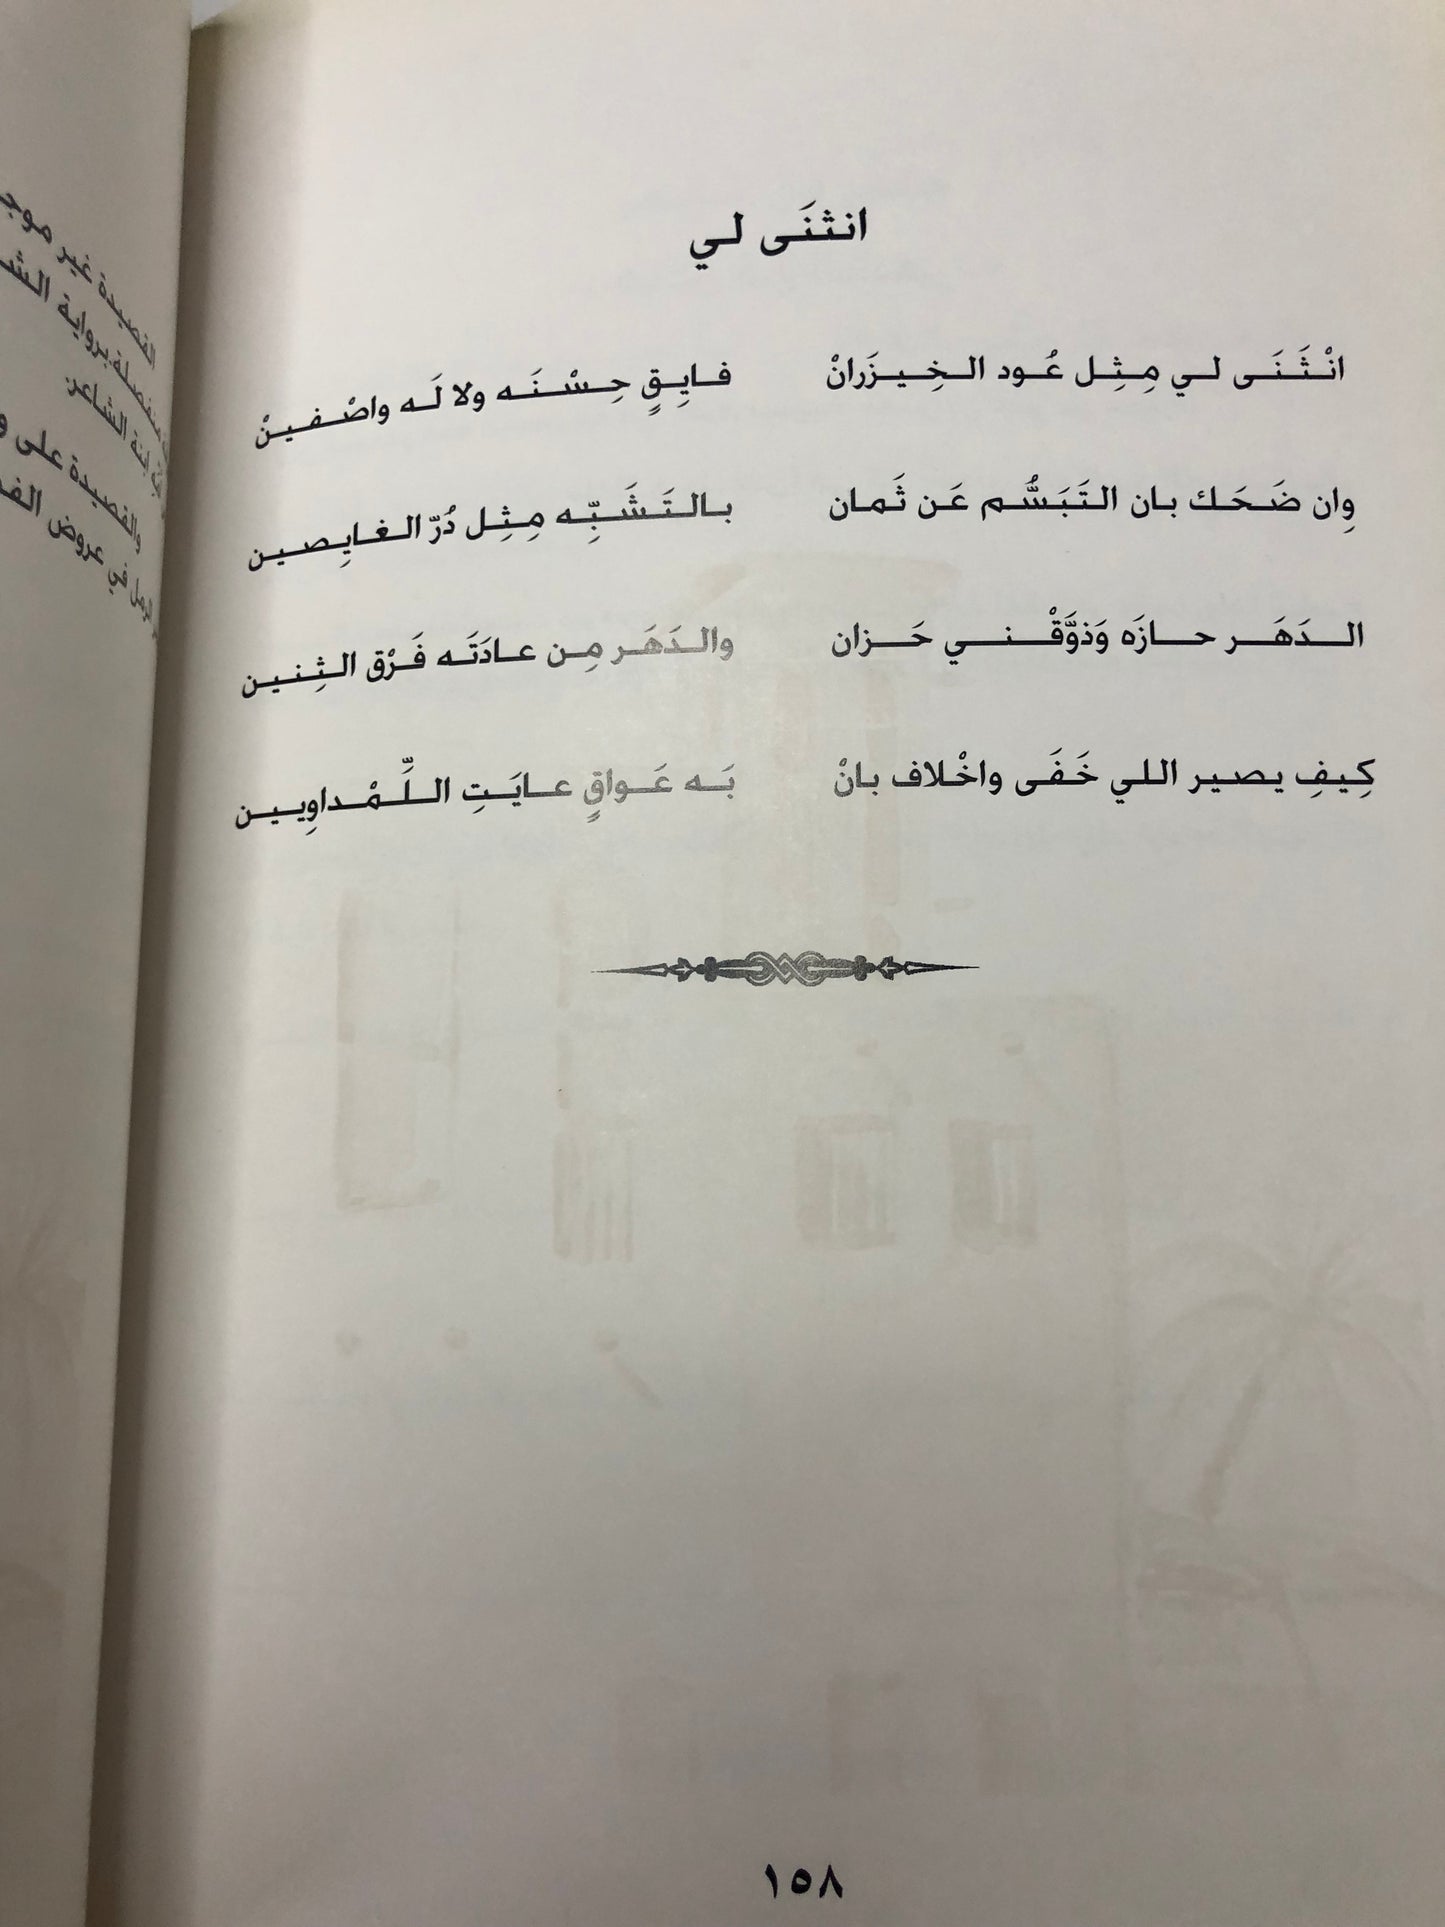 انثنَى لي
انْثَنَى لي مِثِل عُود الخِيزَرانْ فايِقٍ حِسْنَه ولا لَه واصْفينْ
وِان ضَحَك بان التَبَسُّم عَن ثَمان بالتَشَبِّه مِثِل دُرّ الغايِصين
الدَهَر حازَه وَذوَّقْني حَزان والدَهَر مِن عادَتَه فَرْق الثِنين
كِيفِ يصير اللي خَفَى واخْلاف بانْ بَه عَواقٍ عايَتِ اللِّمْداوِيين
١٥٨
القصيدة غير
منفصلة برواية
ابنة الشاعر.
والقصيدة على
الرمل في عروض